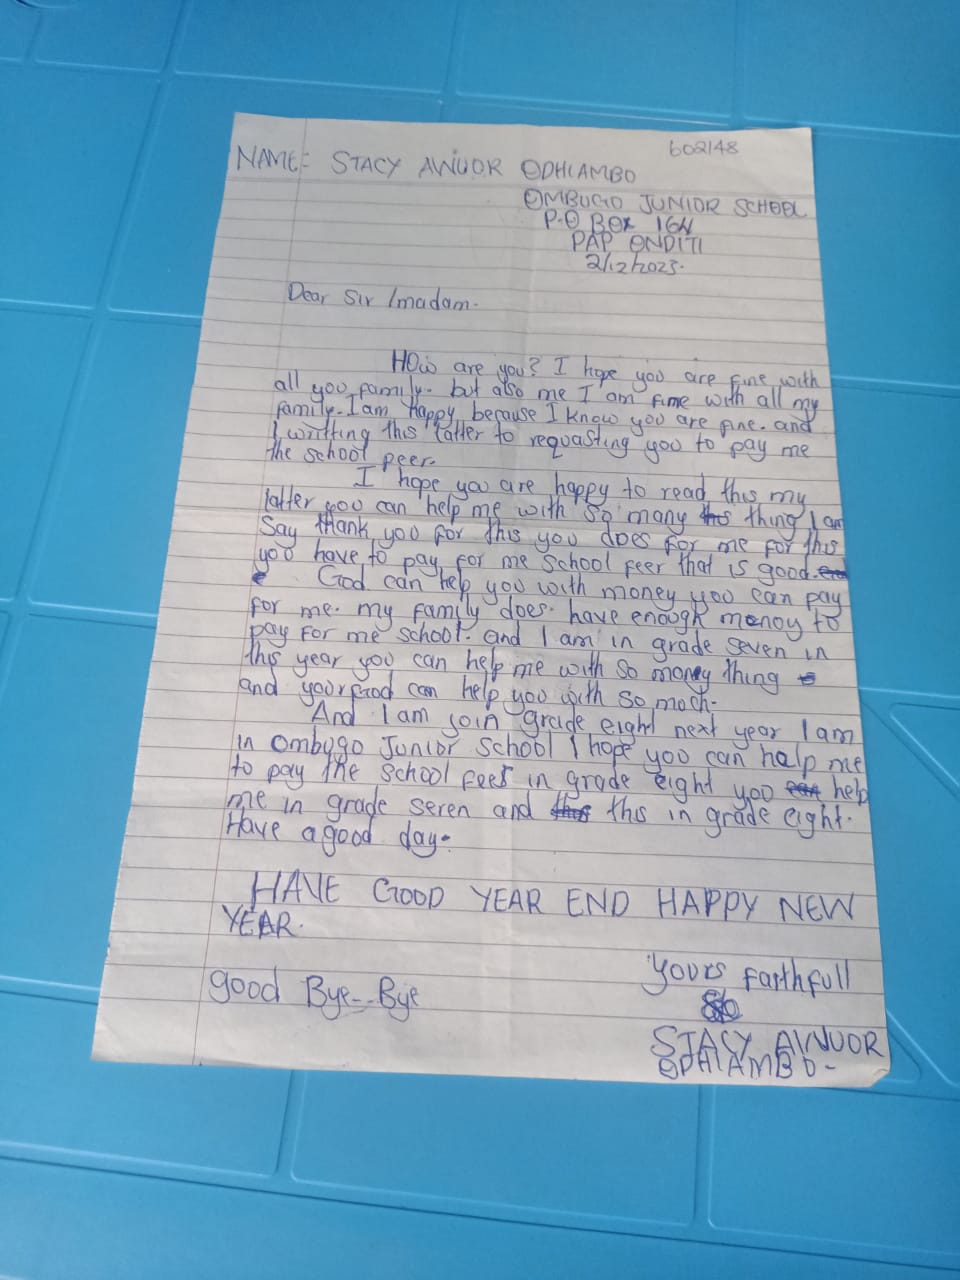 602148
NAME: STACY AWUOR ODHIAMBO
OMBUGO JUNIOR SCHOOL
P.O BOX 164
PAP ONDITI
2/12/2023.
Dear Sir /madam.
HOw are you? I hope you are fine with
all you family. but also me I am fime with all my
family. I am happy because I know you are fine. and
I writting this latter to requasting you to pay me
the school peer.
I hope you are happy to read this my
latter you can help me with so many thing I am
Say thank you for this you does for me for this
you have to pay for me School feer that is good.
God can help you with money you can pay
for me. my family does. have enough menoy to
pay for me school. and I am in grade seven in
this year you can help me with so money thing
and your God can help you with so much.
And I am join grade eight next year I am
in Ombugo Junior School I hope you can help me
to pay the school fees in grade eight you help
me in grade seren and this in grade eight.
Have a good day.
HAVE GOOD YEAR END HAPPY NEW
YEAR.
good Bye-- Bye
Yours faithfull
STACY AWUOR
ODHIAMBO-